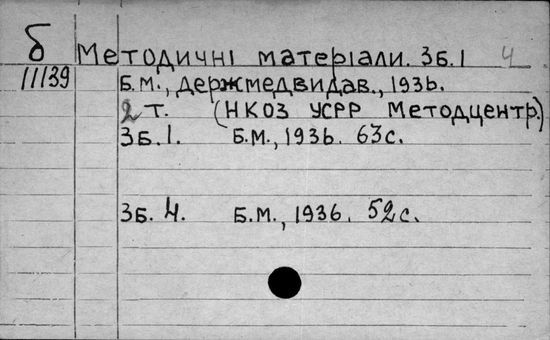 Б Методичні матеріали. Зб. 1 4
11139 Б.М., Держмедвидав., 1936.
2 т. (НКОЗ УСРР Методцентр.)
Зб. 1. Б.М., 1936. 63 с.
Зб. 4. Б.М., 1936. 52 с.